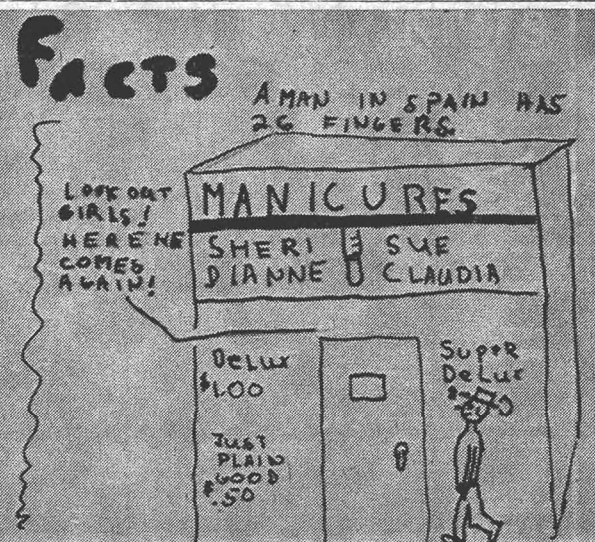 FACTS
A MAN IN SPAIN HAS
26 FINGERS
LOOK OUT
GIRLS!
HERE HE
COMES
AGAIN!
MANICURES
SHERI
DIANNE
SUE
CLAUDIA
DELUX
$1.00
JUST
PLAIN
GOOD
$.50
SUPER
DELUX